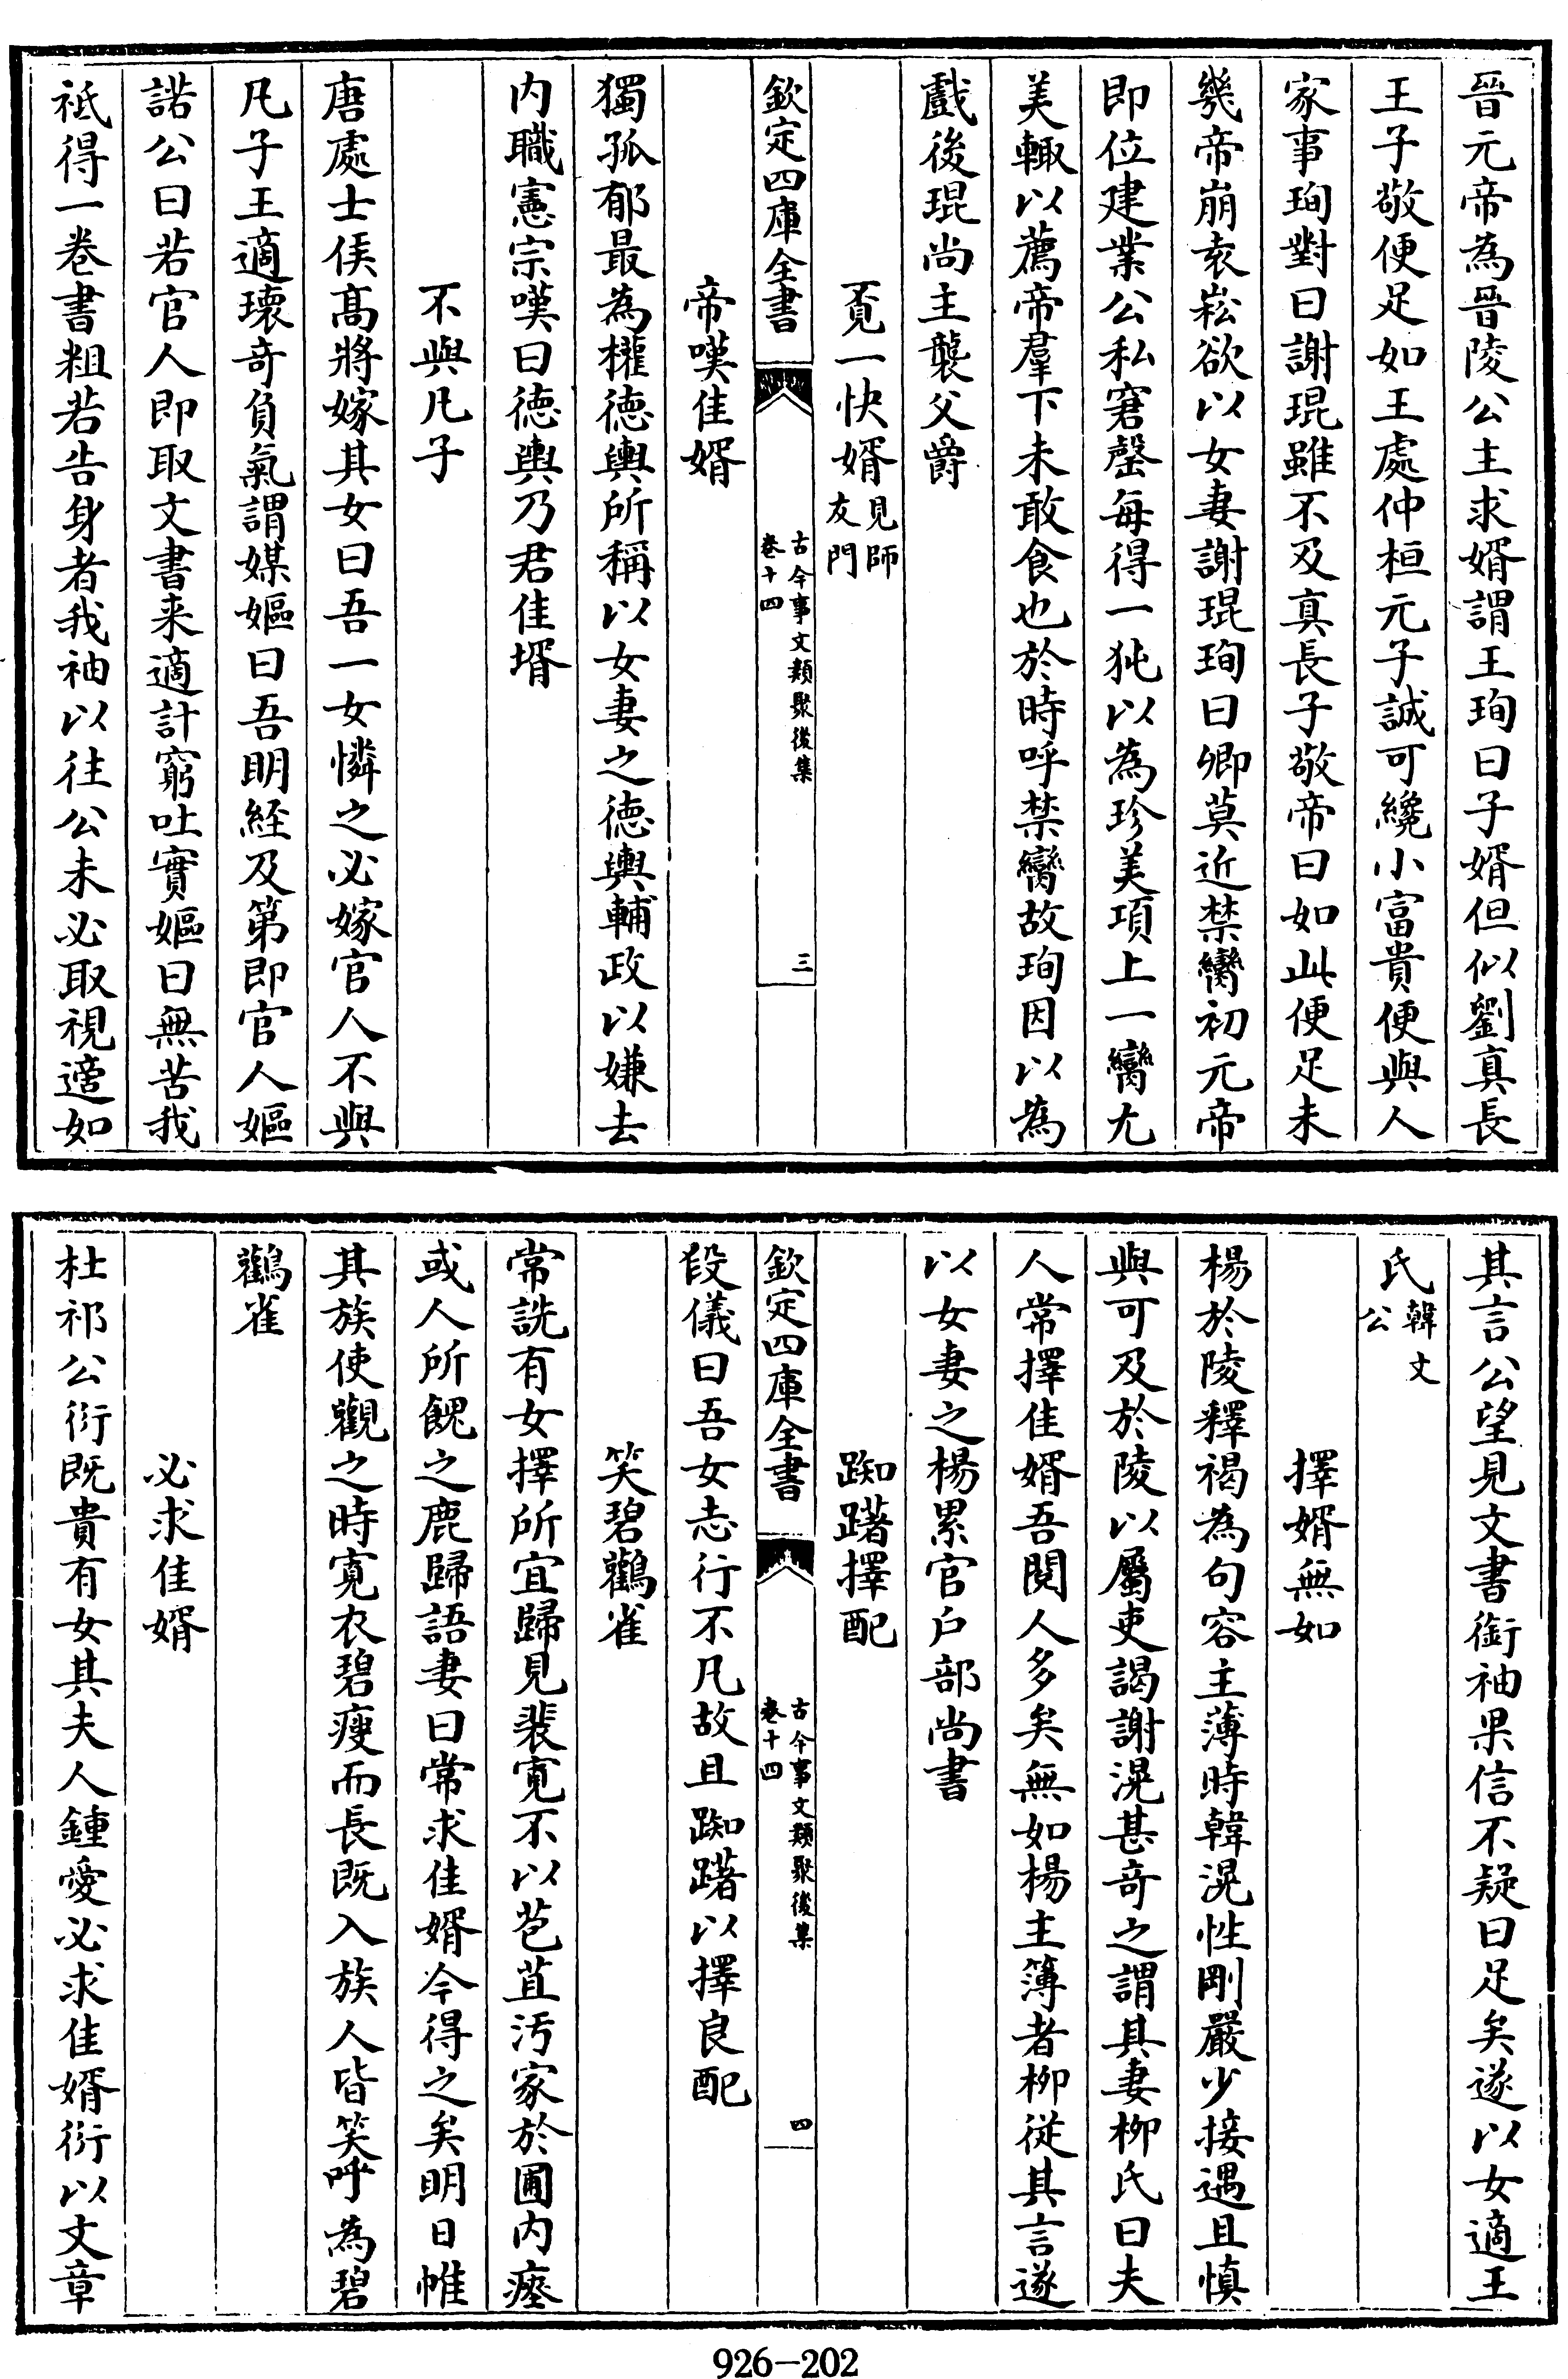 晉元帝為晉陵公主求婿謂王珣曰子婿但似劉真長
王子敬便足如王處仲桓元子誠可纔小富貴便與人
家事珣對曰謝琨雖不及真長子敬帝曰如此便足未
幾帝崩袁崧欲以女妻謝琨珣曰卿莫近禁臠初元帝
即位建業公私窘罄每得一㹠以為珍美項上一臠尤
美輙以薦帝羣下未敢食也於時呼禁臠故珣因以為
戲後琨尚主襲父爵
覔一快婿見師友門
欽定四庫全書 古今事文類聚後集 卷十四 三
帝嘆佳婿
獨孤郁最為權徳輿所稱以女妻之徳輿輔政以嫌去
内職憲宗嘆曰徳輿乃君佳壻
不與凡子
唐處士侯髙將嫁其女曰吾一女憐之必嫁官人不與
凡子王適瓌奇負氣謂媒嫗曰吾明經及第即官人嫗
諾公曰若官人即取文書来適計窮吐實嫗曰無苦我
祇得一巻書粗若告身者我袖以往公未必取視適如
其言公望見文書銜袖果信不疑曰足矣遂以女適王
氏韓文公
擇婿無如
楊於陵釋褐為句容主薄時韓滉性剛嚴少接遇且慎
與可及於陵以屬吏謁謝滉甚奇之謂其妻柳氏曰夫
人常擇佳婿吾閱人多矣無如楊主簿者柳從其言遂
以女妻之楊累官戶部尚書
踟躇擇配
欽定四庫全書 古今事文類聚後集 卷十四 四
段儀曰吾女志行不凡故且踟躇以擇良配
笑碧鸛雀
常詵有女擇所宜歸見裴寛不以苞苴汚家於圃内瘞
或人所餽之鹿歸語妻曰常求佳婿今得之矣明日帷
其族使觀之時寛衣碧瘦而長既入族人皆笑呼為碧
鸛雀
必求佳婿
杜祁公衍既貴有女其夫人鍾愛必求佳婿衍以文章
926-202